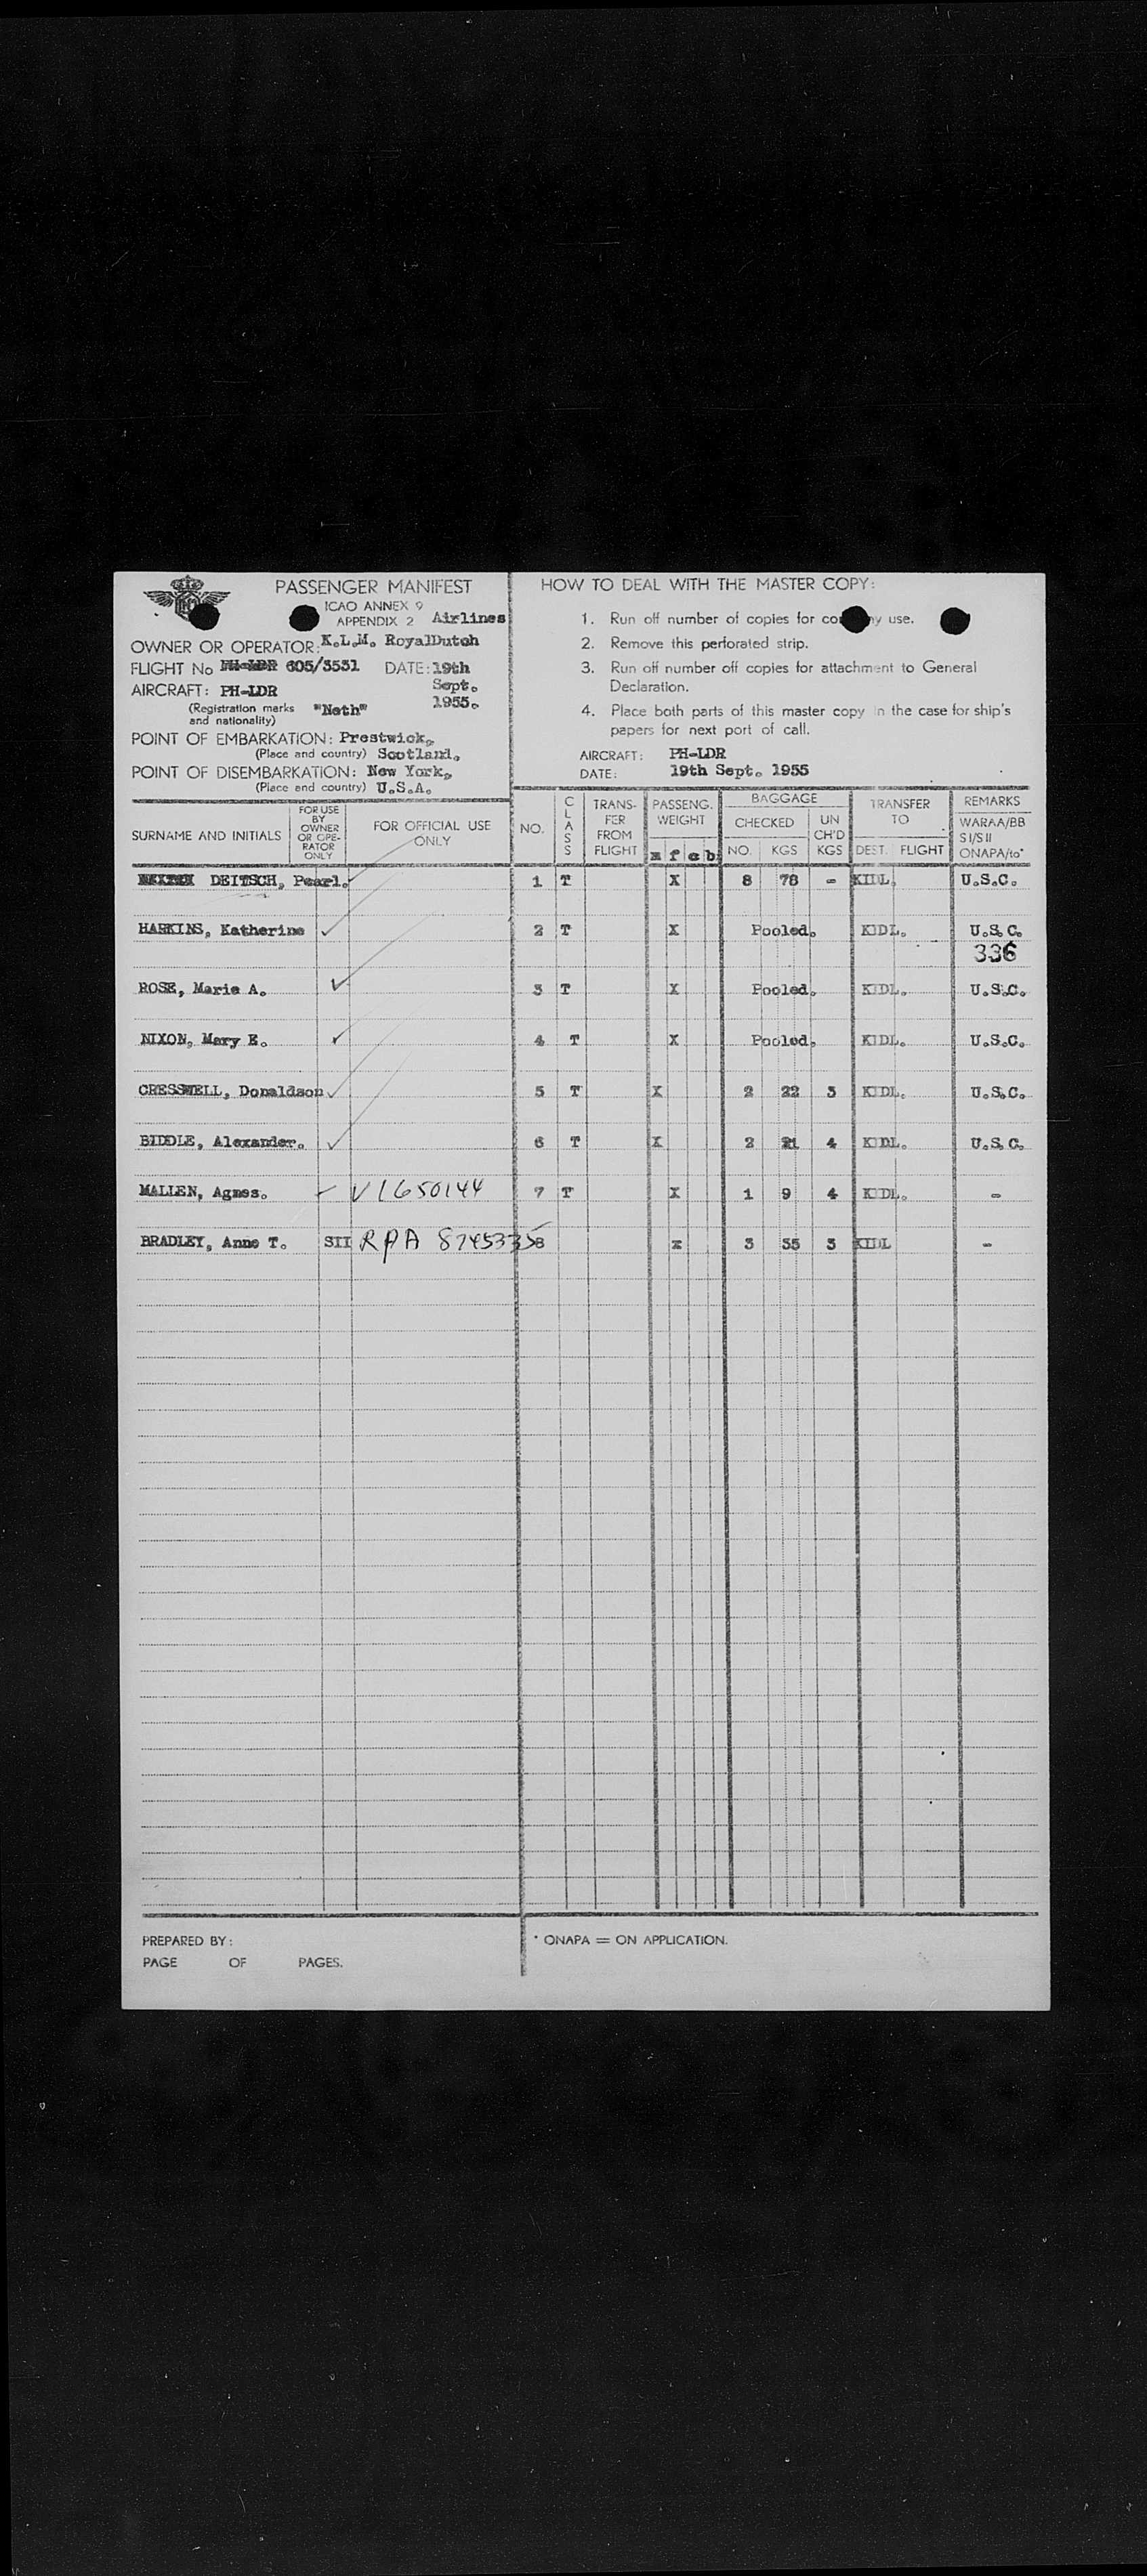 PASSENGER MANIFEST
ICAO ANNEX 9
APPENDIX 2 Airlines
OWNER OR OPERATOR: K.L.M. RoyalDutch
FLIGHT No PH-LDR 605/3531 DATE: 19th
Sept.
1955.
AIRCRAFT: PH-LDR
(Registration marks "Neth"
and nationality)
POINT OF EMBARKATION: Prestwick,
(Place and country) Scotland,
POINT OF DISEMBARKATION: New York,
(Place and country) U.S.A.
HOW TO DEAL WITH THE MASTER COPY:
1. Run off number of copies for company use.
2. Remove this perforated strip.
3. Run off number off copies for attachment to General
Declaration.
4. Place both parts of this master copy in the case for ship's
papers for next port of call.
AIRCRAFT: PH-LDR
DATE: 19th Sept. 1955
SURNAME AND INITIALS
FOR USE
BY
OWNER
OR OPE-
RATOR
ONLY
FOR OFFICIAL USE
ONLY
NO.
CLASS
TRANS-
FER
FROM
FLIGHT
PASSENG.
WEIGHT
m f c b
BAGGAGE
CHECKED
NO. KGS
UN
CH'D
KGS
TRANSFER
TO
DEST. FLIGHT
REMARKS
WARAA/BB
SI/SII
ONAPA/to*
DEITSCH, Pearl. 1 T X 8 78 - KIDL. U.S.C.
HARKINS, Katherine ✓ 2 T X Pooled. KIDL. U.S.C.
336
ROSE, Marie A. ✓ 3 T X Pooled. KIDL. U.S.C.
NIXON, Mary E. ✓ 4 T X Pooled. KIDL. U.S.C.
CRESSWELL, Donaldson ✓ 5 T X 2 22 3 KIDL. U.S.C.
BIDDLE, Alexander. ✓ 6 T X 2 21 4 KIDL. U.S.C.
MALLEN, Agnes. ✓ V1650144 7 T X 1 9 4 KIDL. -
BRADLEY, Anne T. SII RPA 8 x 3 35 3 KIDL -
PREPARED BY:
PAGE OF PAGES.
* ONAPA = ON APPLICATION.